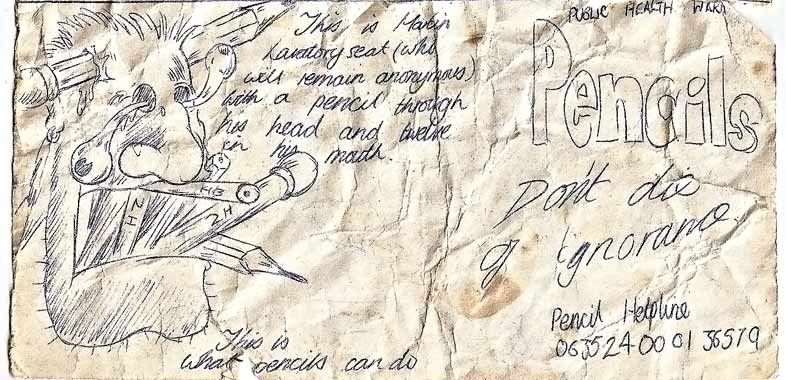 This is Martin
Lavatory seat (who
will remain anonymous)
with a pencil through
his head and twelve
in his mouth.
HB
2H
2H
This is
what pencils can do
PUBLIC HEALTH WARN
Pencils
Don't die
of ignorance
Pencil Helpline
0635240001 36579